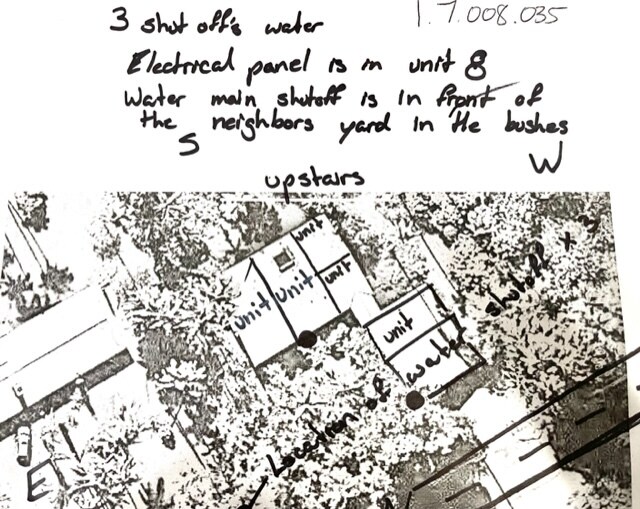 1.7.008.035
3 shut off's water
Electrical panel is in unit 8
Water main shutoff is in front of
the neighbors yard in the bushes
S
W
upstairs
unit
unit
unit
unit
unit
Location of water shutoff x 3
E